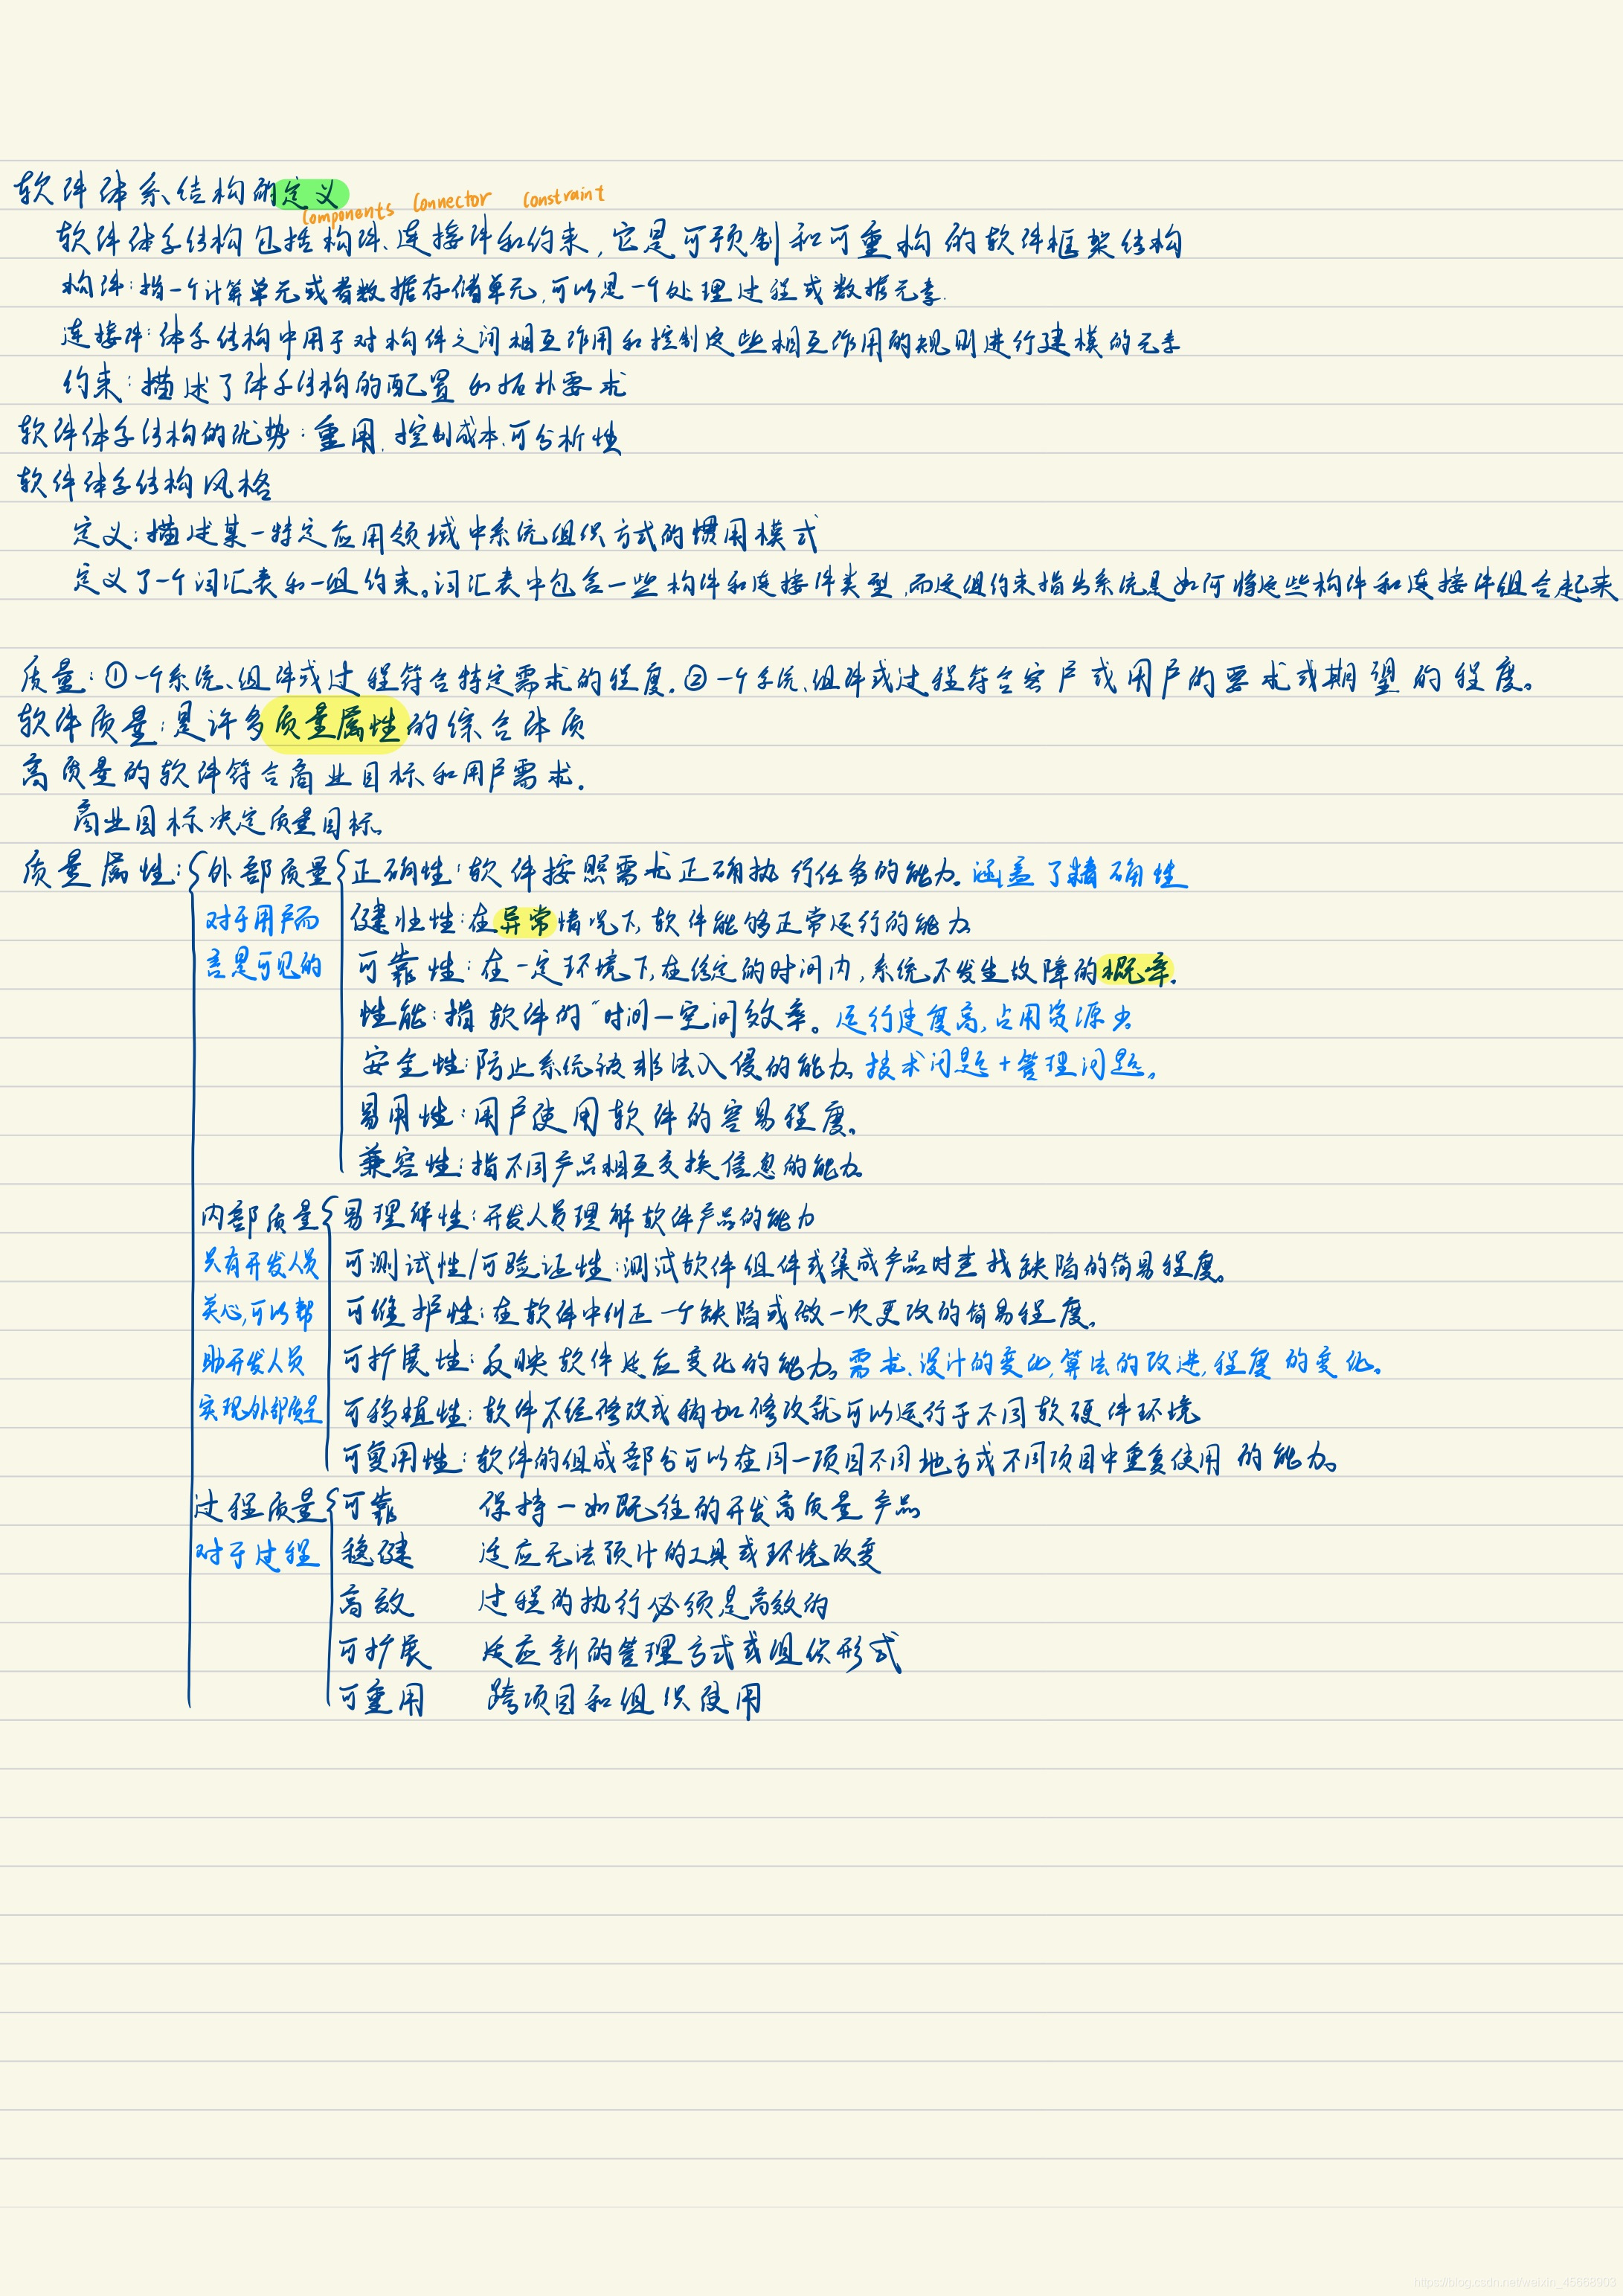 软件体系结构的定义
Components Connector Constraint
软件体系结构包括构件、连接件和约束,它是可预制和可重构的软件框架结构
构件:指一个计算单元或者数据存储单元,可以是一个处理过程或数据元素.
连接件:体系结构中用于对构件之间相互作用和控制这些相互作用的规则进行建模的元素
约束:描述了体系结构的配置和拓扑要求
软件体系结构的优势:重用、控制成本、可分析性
软件体系结构风格
定义:描述某一特定应用领域中系统组织方式的惯用模式
定义了一个词汇表和一组约束。词汇表中包含一些构件和连接件类型,而这组约束指出系统是如何将这些构件和连接件组合起来
质量:①一个系统、组件或过程符合特定需求的程度.②一个系统、组件或过程符合客户或用户的要求或期望的程度。
软件质量:是许多质量属性的综合体质
高质量的软件符合商业目标和用户需求.
商业目标决定质量目标。
质量属性:外部质量 正确性:软件按照需求正确执行任务的能力。涵盖了精确性
对于用户而 健壮性:在异常情况下,软件能够正常运行的能力
言是可见的 可靠性:在一定环境下,在给定的时间内,系统不发生故障的概率.
性能:指软件的“时间—空间效率。运行速度高,占用资源少
安全性:防止系统被非法入侵的能力。技术问题+管理问题。
易用性:用户使用软件的容易程度。
兼容性:指不同产品相互交换信息的能力。
内部质量 易理解性:开发人员理解软件产品的能力
只有开发人员 可测试性/可验证性:测试软件组件或集成产品时查找缺陷的简易程度。
关心,可以帮 可维护性:在软件中纠正一个缺陷或做一次更改的简易程度。
助开发人员 可扩展性:反映软件适应变化的能力。需求、设计的变化,算法的改进,程度的变化。
实现外部质量 可移植性:软件不经修改或稍加修改就可以运行于不同软硬件环境
可复用性:软件的组成部分可以在同一项目不同地方或不同项目中重复使用的能力。
过程质量 可靠 保持一如既往的开发高质量产品
对于过程 稳健 适应无法预计的工具或环境改变
高效 过程的执行必须是高效的
可扩展 适应新的管理方式或组织形式
可重用 跨项目和组织使用
https://blog.csdn.net/weixin_45668903